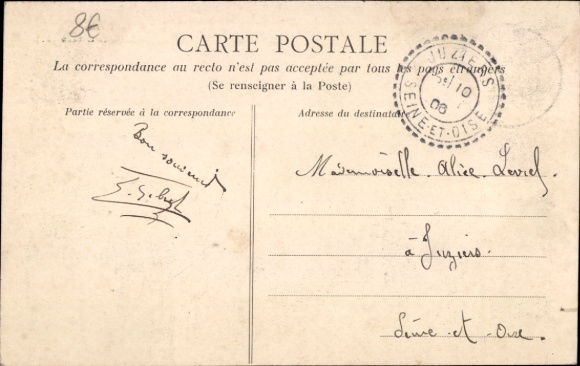 8€
CARTE POSTALE
La correspondance au recto n'est pas acceptée par tous les pays étrangers
(Se renseigner à la Poste)
Partie réservée à la correspondance
Adresse du destinataire
JUZIERS
10
06
SEINE-ET-OISE
Bon souvenir
Mademoiselle Alice
à Juziers
Seine et Oise